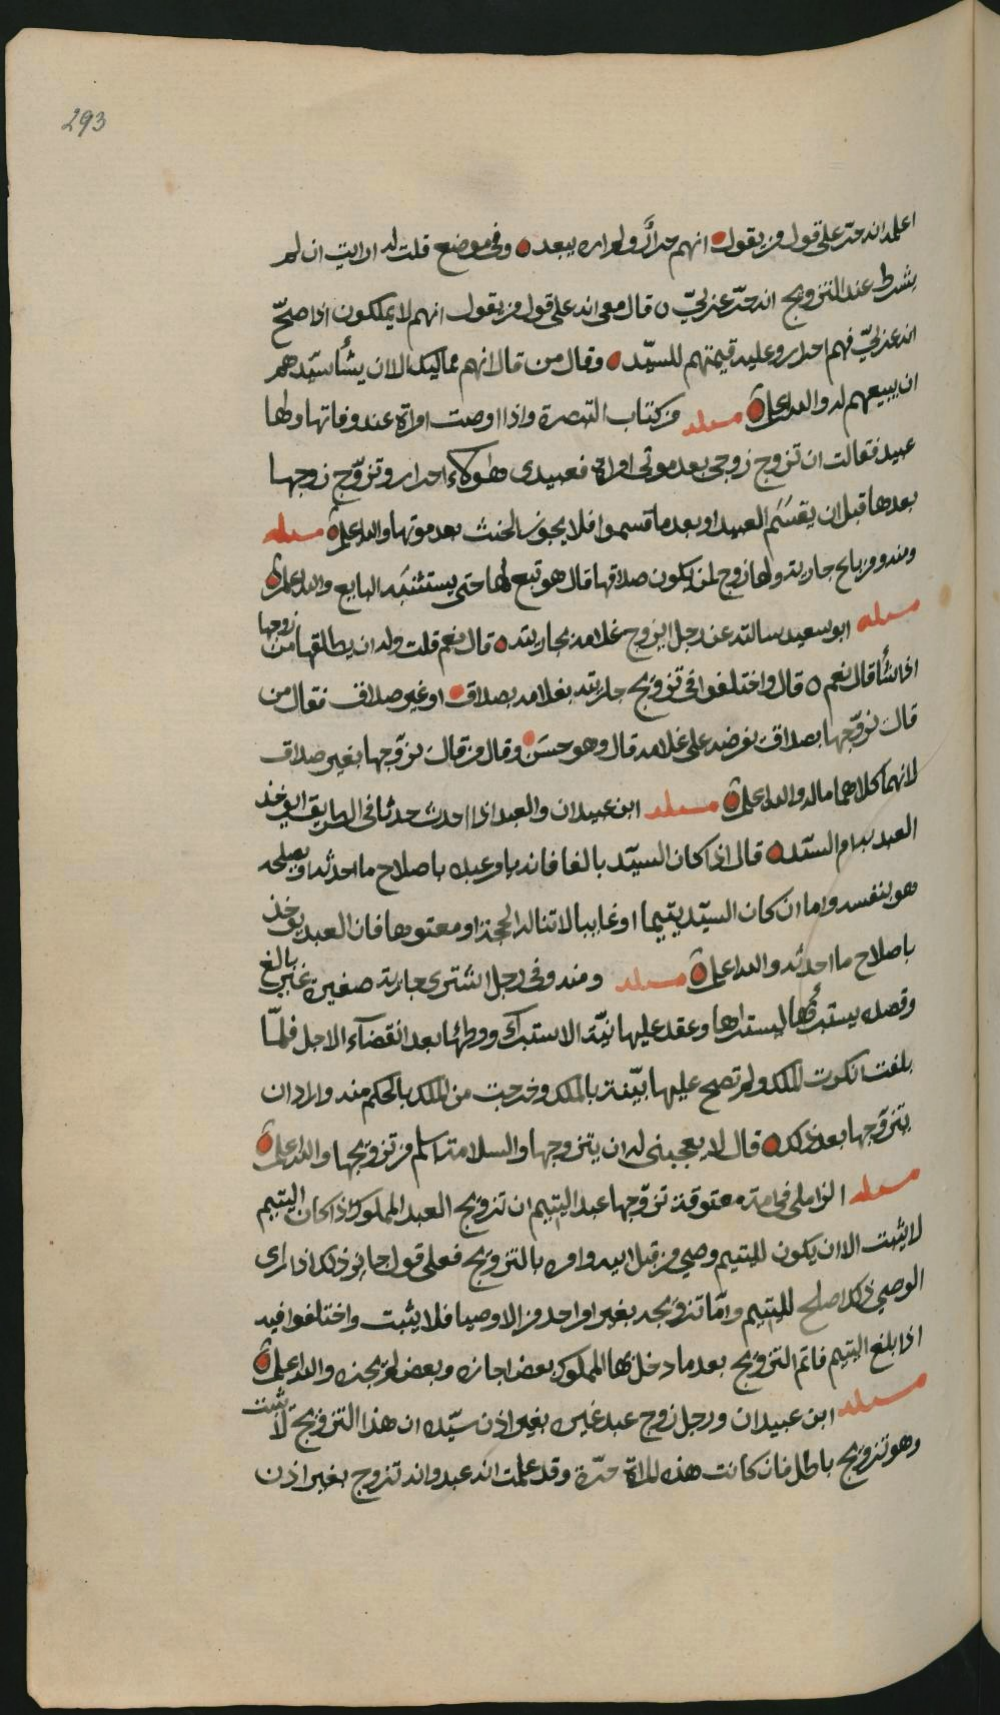 293
اعلمه انه حرّ على قول من يقول انهم حرائر ولم اره يبعد ه وفي موضع قلت له ارايت ان لم
يشرط عند التزويج انه حرّ عربيّ ه قال معي انه على قول من يقول انهم لا يملكون اذا صحّ
انه عربيّ فهم احرار وعليه قيمتهم للسيّد ه وقال من قال انهم مماليك الا ان يشأ سيّدهم
ان يبيعهم له والله اعلم مسله من كتاب التبصرة واذا اوصت امراة عند وفاتها ولها
عبيد فقالت ان تزوج زوجي بعد موتي امراة فعبيدى هٰولاء احرار وتزوّج زوجها
بعدها قبل ان يقسَم العبيد او بعد ما قسموا فلا يجوز الحنث بعد موتها والله اعلم مسله
ومنه ومن باع جاريته ولها زوج لمن يكون صداقها قال هو تبع لها حتى يستثنيه البايع والله اعلم
مسله ابو سعيد سالته عن رجل ايزوج غلامه بجاريته ه قال نعم قلت وله ان يطلقها من زوجها
اذا شأ قال نعم ه قال واختلفوا في تزويج جاريته بغلامه بصداق او غير صداق فقال من
قال يزوّجها بصداق يفرضه على غلامه قال وهو حسَن وقال من قال يزوّجها بغير صداق
لانهما كلاهما ماله والله اعلم مسله ابن عبيدان والعبد اذا احدث حدثا في الطريق ايوخذ
العبد بها ام السيّد ه قال اذا كان السيّد بالغا فانه يامر عبده باصلاح ما احدثه او يصلحه
هو بنفسه واما ان كان السيّد يتيما او غايبا لا تناله الحجة او معتوها فان العبد يوخذ
باصلاح ما احدثه والله اعلم مسله ومنه وفي رجل اشترى جارية صغيرة غير بالغ
وقصده يستبرئها ليستراها وعقد عليها نيّة الاستبراء ووطئها بعد انقضآء الاجل فلمّا
بلغت انكرت الملك ولم تصح عليها بيّنة بالملك وخرجت من الملك بالحكم منه واراد ان
يتزوّجها بعد ذلك ه قال لا يعجبني له ان يتزوجها والسلامة اسلم من تزويجها والله اعلم
مسله الزاملي في امة معتوقة تزوّجها عبد اليتيم ان تزويج العبد المملوك اذا كان ليتيم
لا يثبت الا ان يكون لليتيم وصي من قبل ابيه وامره بالتزويج فعلى قول جايز ذلك اذا راى
الوصي ذلك اصلح لليتيم وامّا تزويجه بغير امر احد من الاوصيا فلا يثبت واختلفوا فيه
اذا بلغ اليتيم فاتم التزويج بعد ما دخل بها المملوك بعض اجازه وبعض لم يجزه والله اعلم
مسله ابن عبيدان ورجل زوج عبد غيره بغير اذن سيّده ان هذا التزويج لا يثبت
وهو تزويج باطل فان كانت هذه المراة حرّة وقد علمت انه عبد وانه تزوج بغير اذن